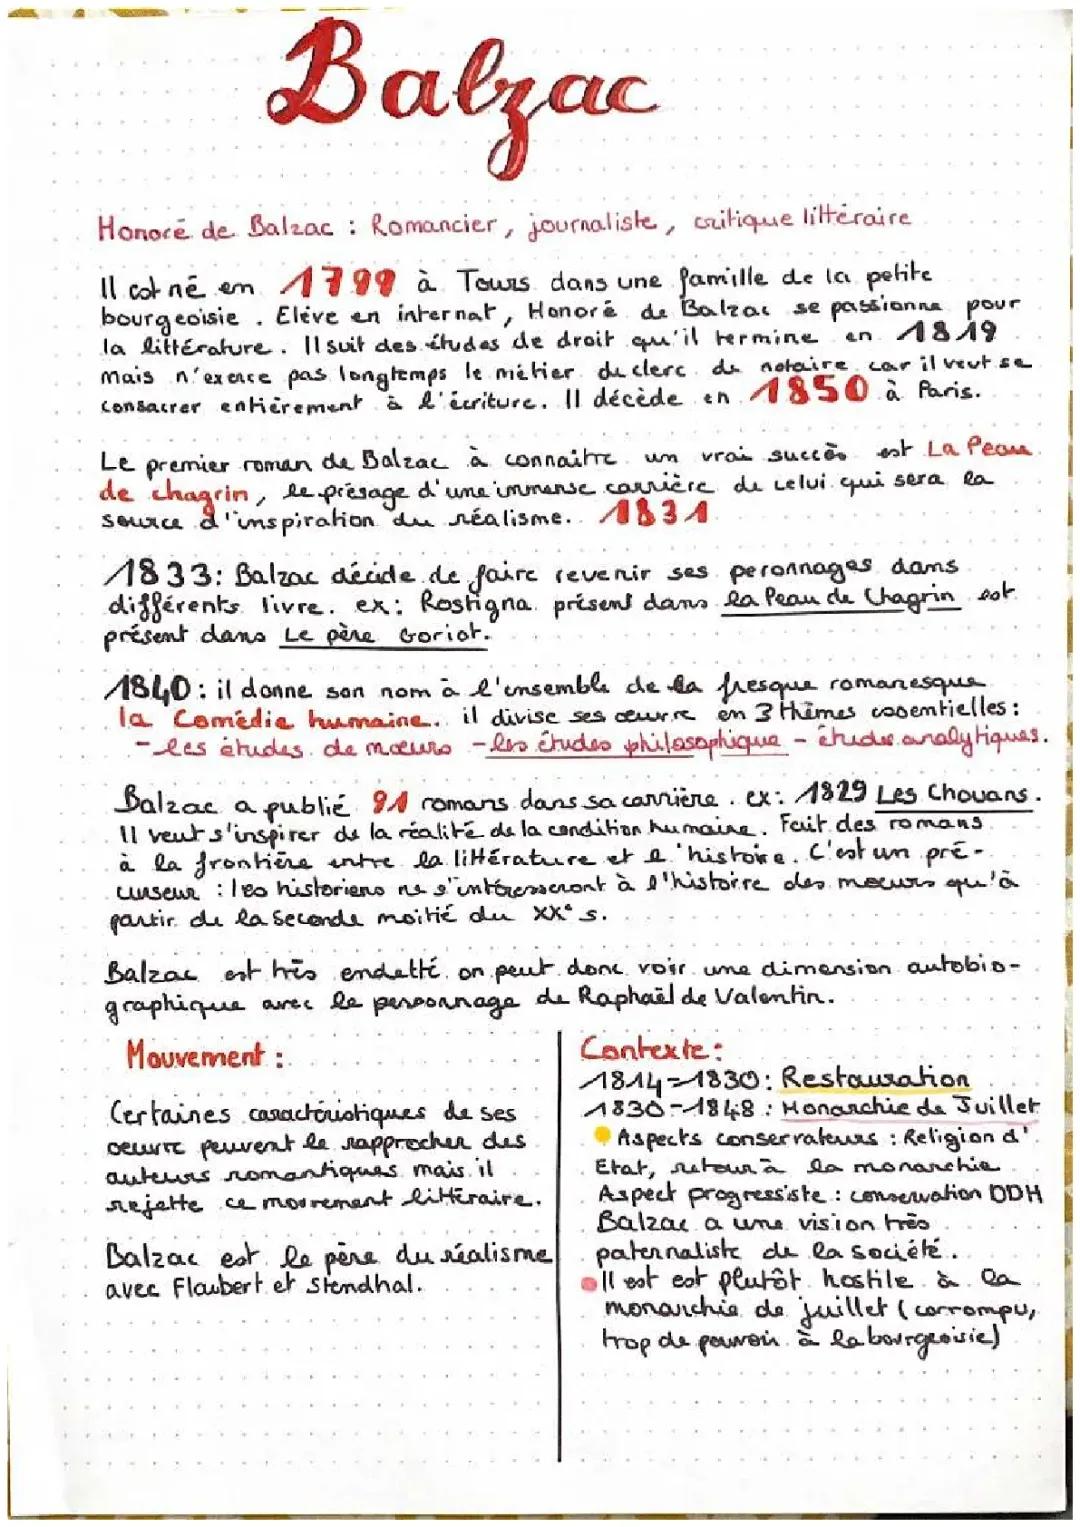 Balzac
Honoré de Balzac : Romancier, journaliste, critique littéraire
Il est né en 1799 à Tours dans une famille de la petite
bourgeoisie. Elève en internat, Honoré de Balzac se passionne pour
la littérature. Il suit des études de droit qu'il termine en 1819
mais n'exerce pas longtemps le métier de clerc de notaire car il veut se
consacrer entièrement à l'écriture. Il décède en 1850 à Paris.
Le premier roman de Balzac à connaitre un vrai succès est La Peau
de chagrin, le présage d'une immense carrière de celui qui sera la
source d'inspiration du réalisme. 1831
1833: Balzac décide de faire revenir ses peronnages dans
différents livre. ex: Rostigna présent dans la Peau de Chagrin est
présent dans Le père Goriot.
1840: il donne son nom à l'ensemble de la fresque romanesque
la Comédie humaine. il divise ses œuvre en 3 thèmes essentielles:
- les études de mœurs - les études philosophique - études analytiques.
Balzac a publié 91 romans dans sa carrière. ex: 1829 Les Chouans.
Il veut s'inspirer de la réalité de la condition humaine. Fait des romans
à la frontière entre la littérature et l'histoire. C'est un pré-
curseur : les historiens ne s'intéresseront à l'histoire des mœurs qu'à
partir de la Seconde moitié du XX° s.
Balzac est très endetté on peut donc voir une dimension autobio-
graphique avec le personnage de Raphaël de Valentin.
Mouvement :
Certaines caractéristiques de ses
œuvre peuvent le rapprocher des
auteurs romantiques mais il
rejette ce mouvement littéraire.
Balzac est le père du réalisme
avec Flaubert et Stendhal.
Contexte:
1814-1830: Restauration
1830-1848: Monarchie de Juillet
Aspects conservateurs : Religion d'
Etat, retour à la monarchie
Aspect progressiste : conservation DDH
Balzac a une vision très
paternaliste de la société.
Il est est plutôt hostile à la
monarchie de juillet (corrompu,
trop de pouvoir à la bourgeoisie)